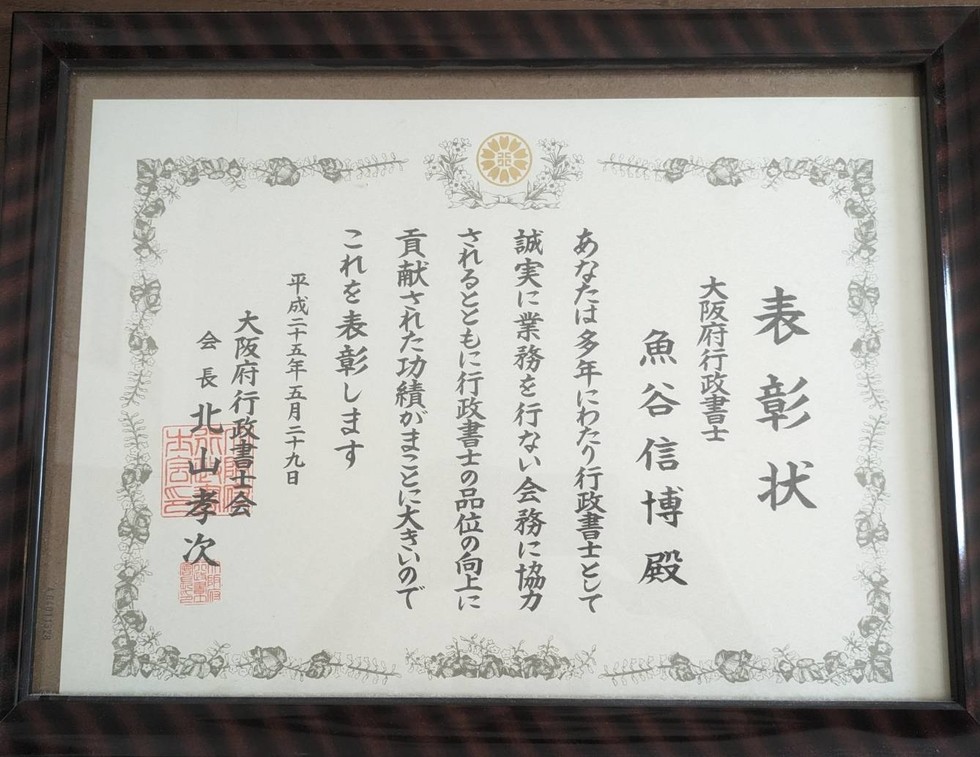 表彰状
大阪府行政書士
魚谷信博殿
あなたは多年にわたり行政書士として
誠実に業務を行ない会務に協力
されるとともに行政書士の品位の向上に
貢献された功績がまことに大きいので
これを表彰します
平成二十五年五月二十九日
大阪府行政書士会
会長 北山孝次